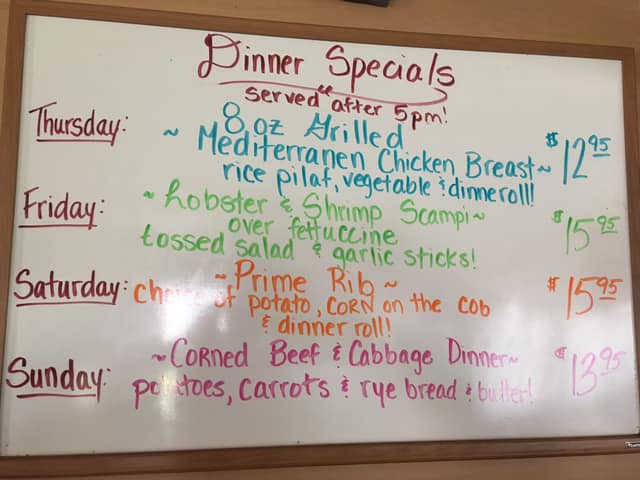 Dinner Specials
served after 5pm!
Thursday: 8 oz Grilled
~ Mediterranen Chicken Breast ~ $12.95
rice pilaf, vegetable & dinner roll!
Friday: ~ Lobster & Shrimp Scampi ~ $15.95
over fettuccine
tossed salad & garlic sticks!
Saturday: ~ Prime Rib ~ $15.95
choice of potato, corn on the cob
& dinner roll!
Sunday: ~ Corned Beef & Cabbage Dinner ~ $13.95
potatoes, carrots & rye bread & butter!